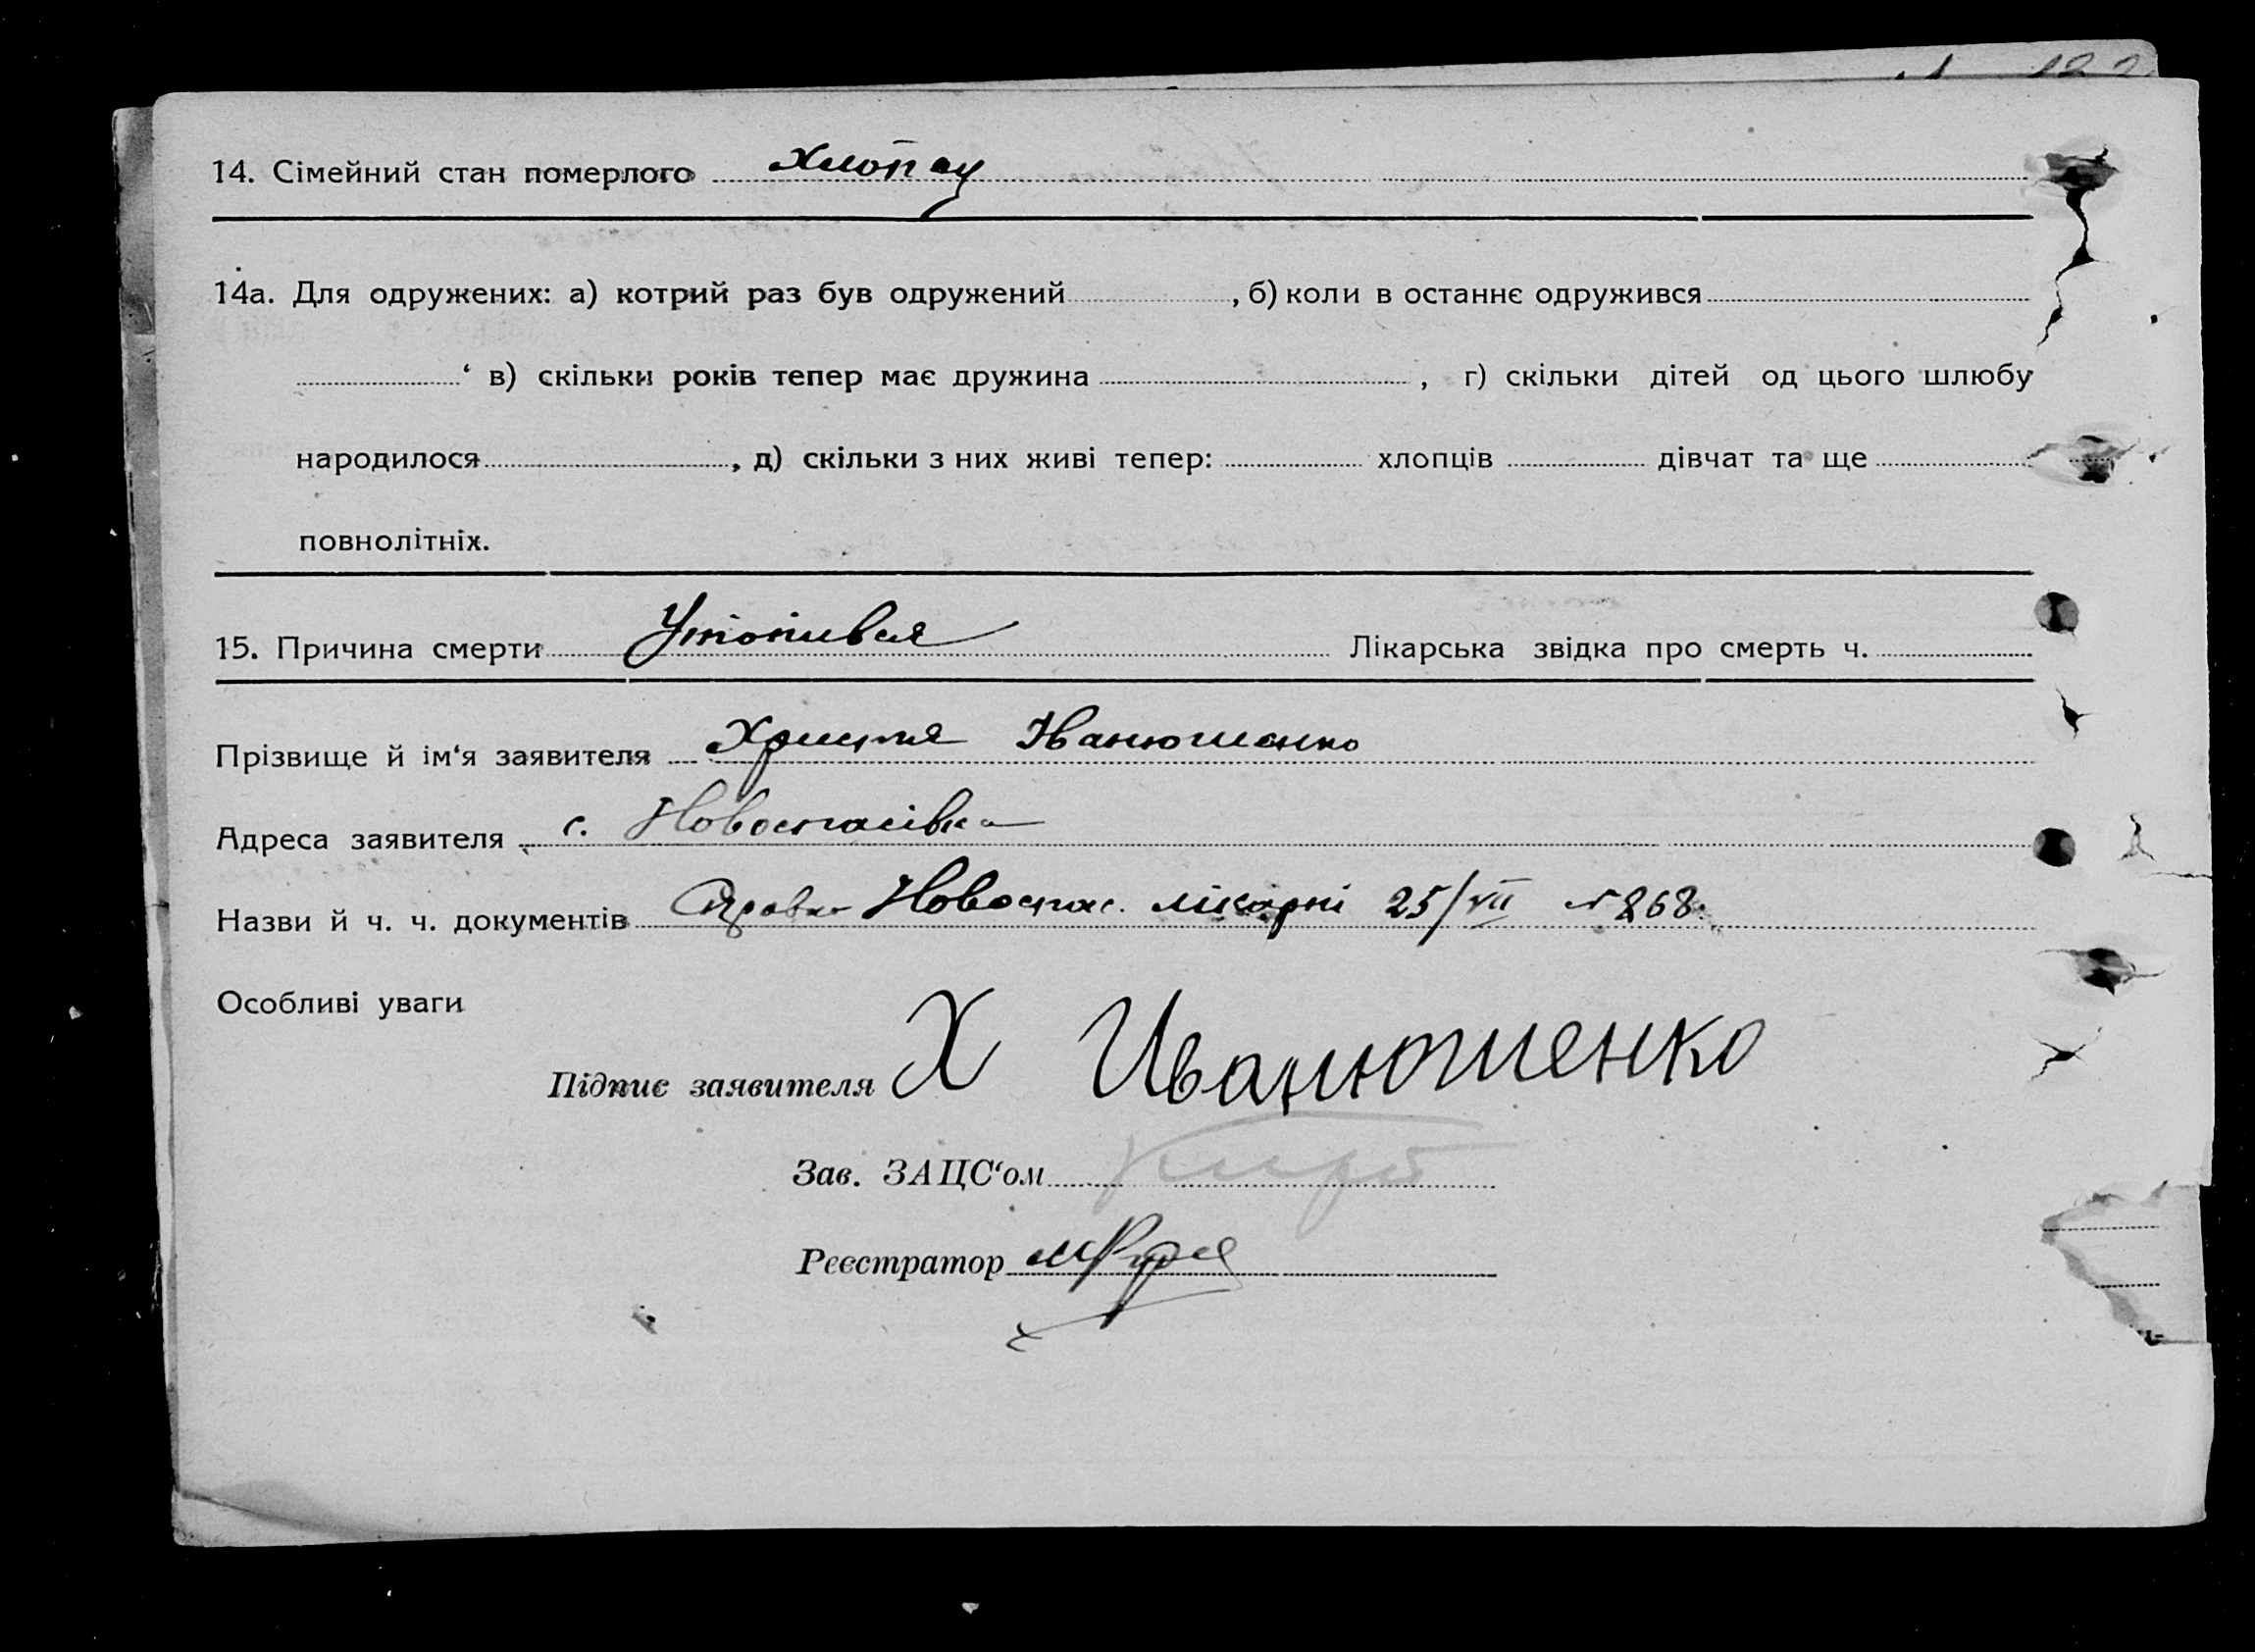 122
14. Сімейний стан померлого хлопец
14а. Для одружених: а) котрий раз був одружений , б) коли в останнє одружився
‘ в) скільки років тепер має дружина , г) скільки дітей од цього шлюбу
народилося , д) скільки з них живі тепер: хлопців дівчат та ще
повнолітніх.
15. Причина смерти Утопився Лікарська звідка про смерть ч.
Прізвище й ім‘я заявителя Христя Іванюшенко
Адреса заявителя с. Новоспасівка
Назви й ч. ч. документів Справка Новоспас. лікарні 25/VII № 868.
Особливі уваги
Підпис заявителя Х Иванюшенко
Зав. ЗАЦС‘ом
Реєстратор